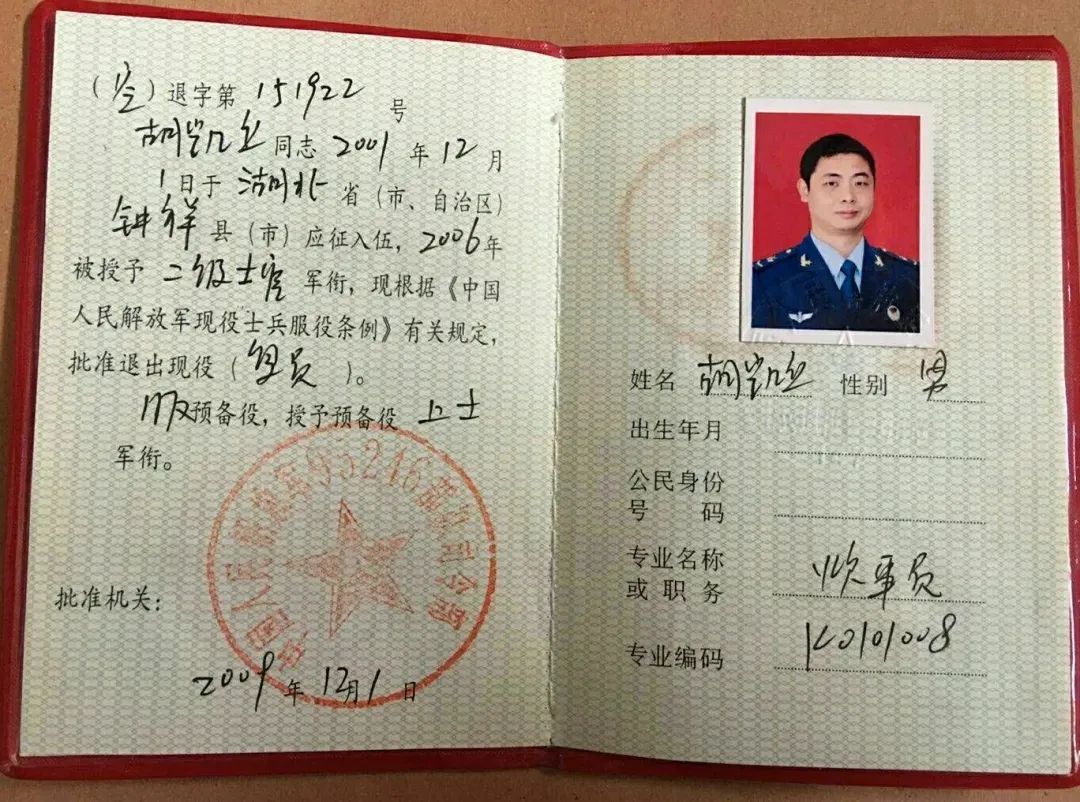 （空）退字第 151922 号
胡凯 同志 2001 年 12 月
1 日于 湖北 省（市、自治区）
钟祥 县（市）应征入伍，2006年
被授予 二级士官 军衔，现根据《中国
人民解放军现役士兵服役条例》有关规定，
批准退出现役（复员）。
服预备役，授予预备役 上士
军衔。
中国人民解放军95246部队司令部
批准机关：
2009 年 12月 1 日
姓名 胡凯 性别 男
出生年月
公民身份
号码
专业名称
或职务 员
专业编码